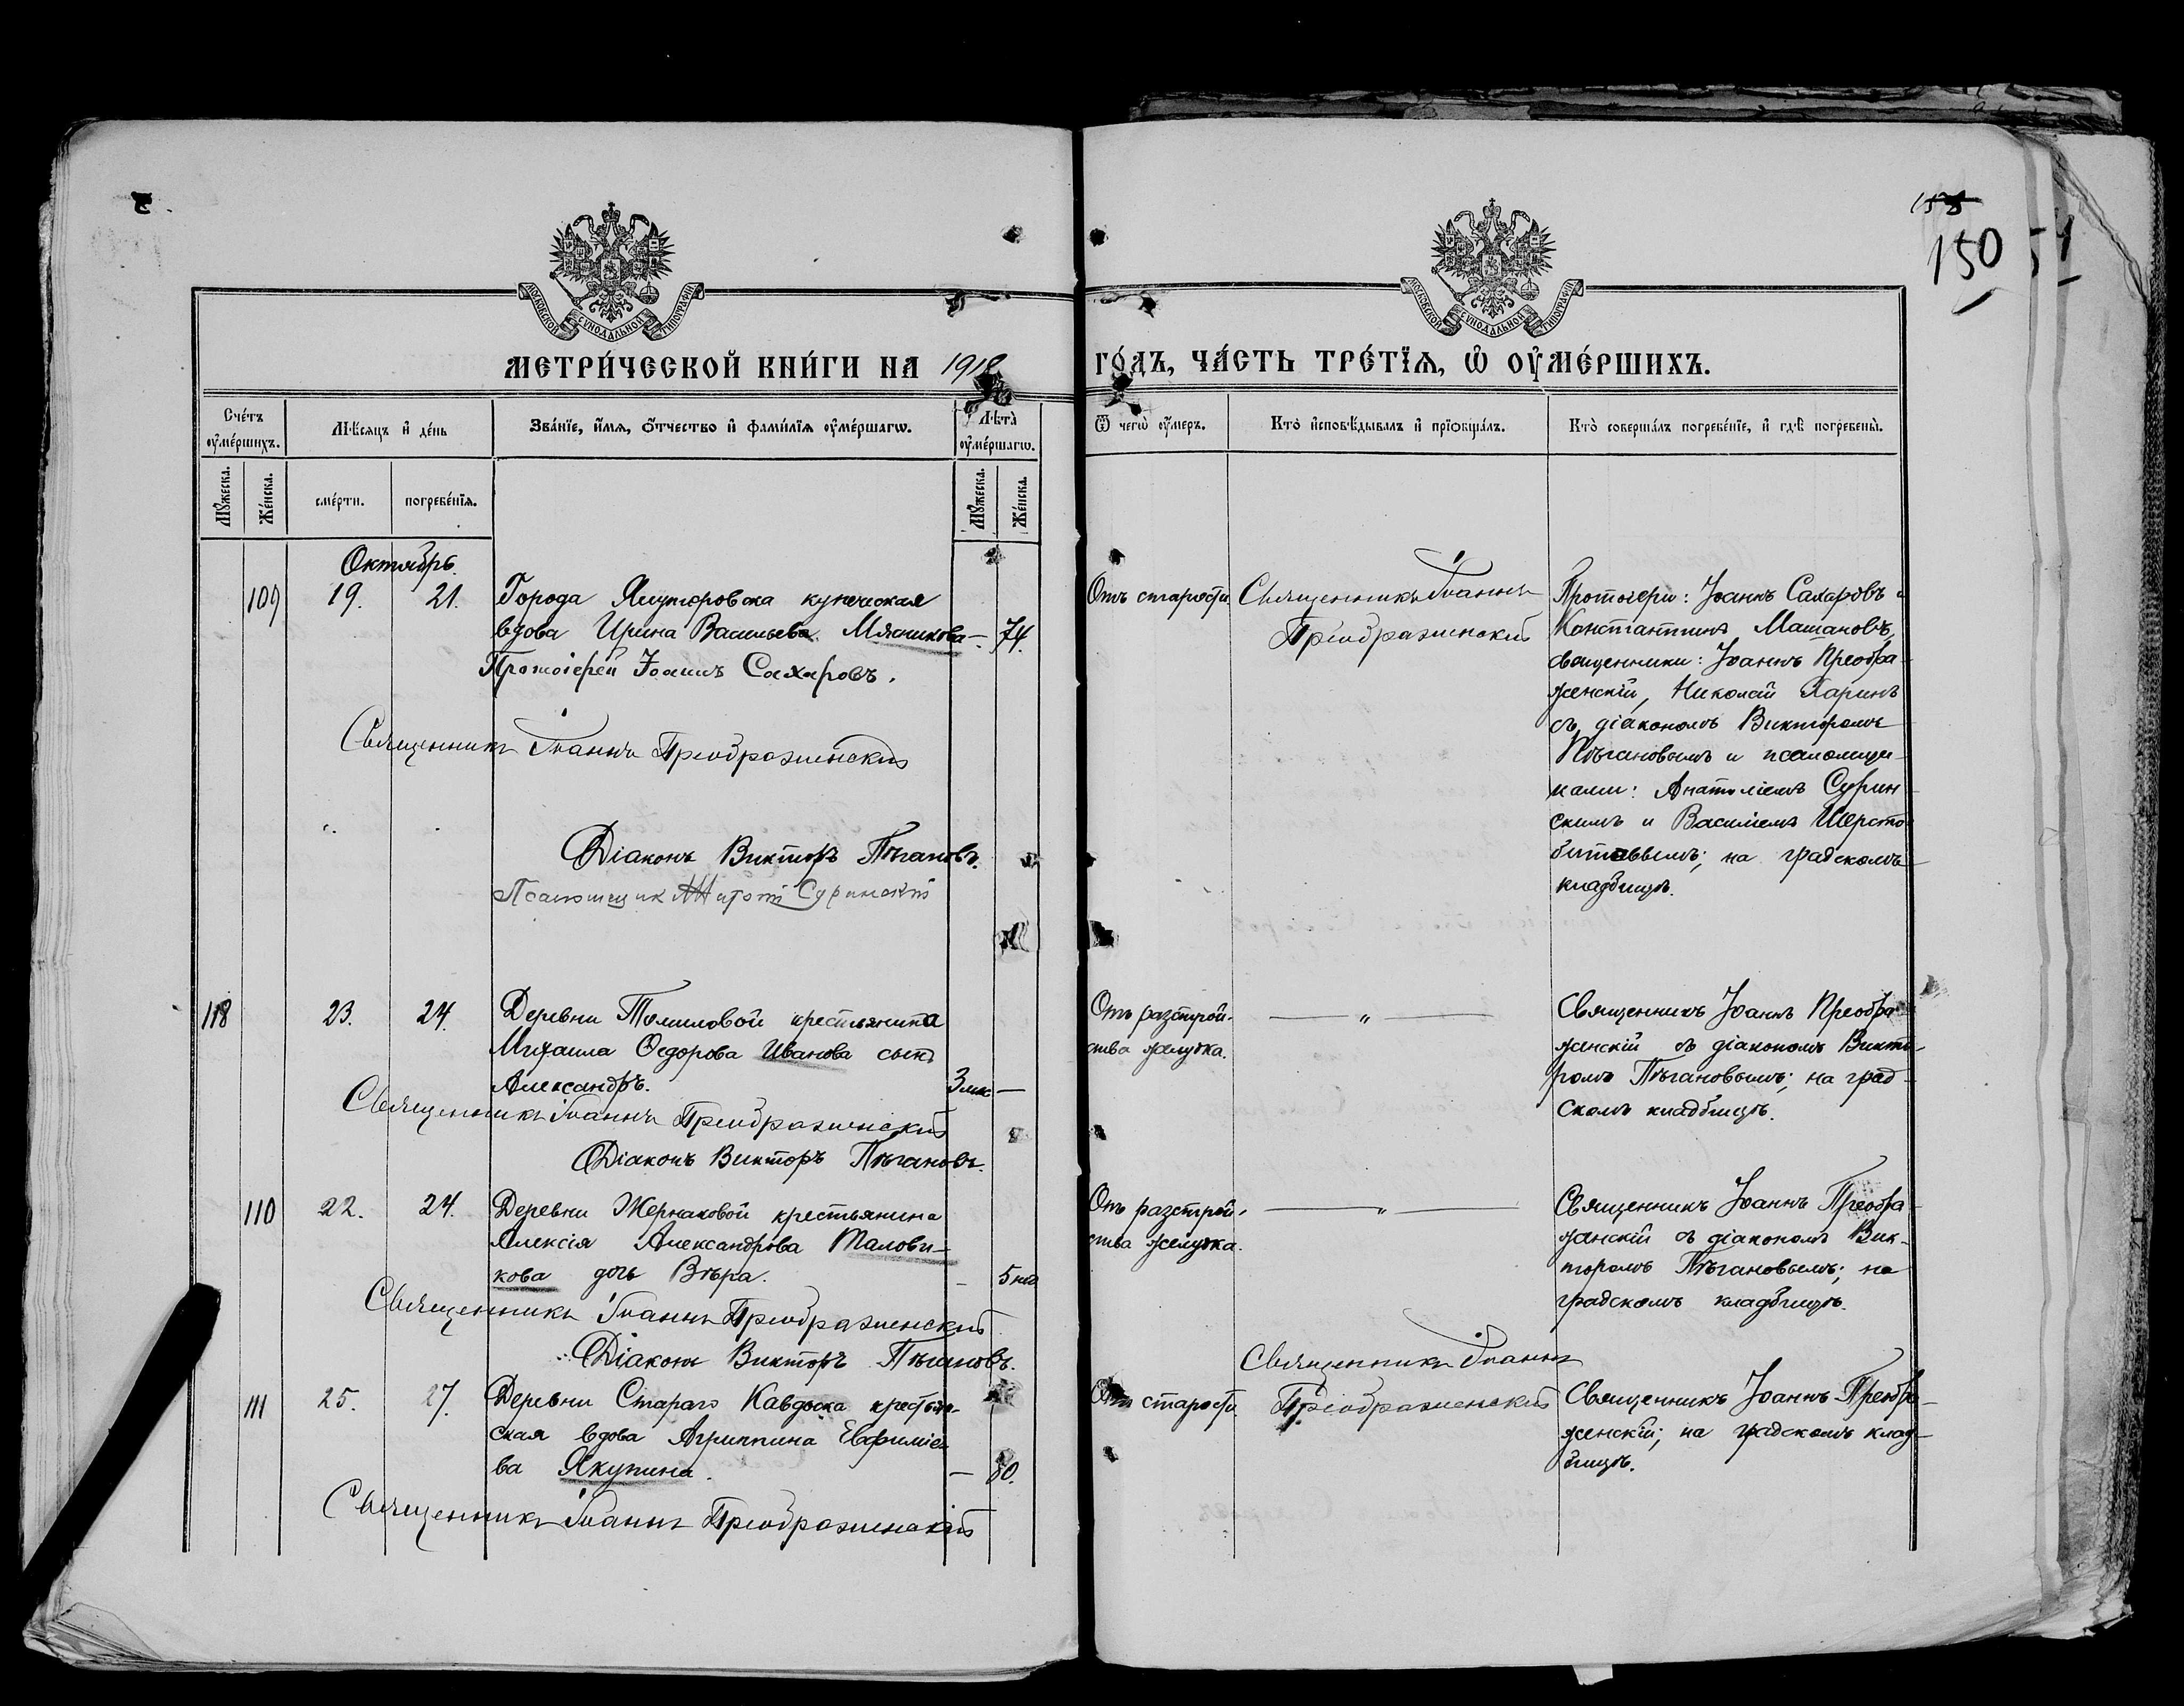 158
150
51
МОСКОВСКОЙ СУНОДАЛЬНОЙ ТИПОГРАФІИ
МОСКОВСКОЙ СУНОДАЛЬНОЙ ТИПОГРАФІИ
МЕТРИ́ЧЕСКОЙ КНИ́ГИ НА 1912
ГО́ДЪ, ЧА́СТЬ ТРЕ́ТЇѦ, Ѡ҆ ОУ҆МЕ́РШИХЪ.
Сче́тъ оу҆ме́ршихъ.
Мѣ́сяцъ и҆ де́нь
Зва́нїе, и҆́мѧ, ѻ҆́тчество и҆ фами́лїѧ оу҆ме́ршагѡ.
Лѣ́та оу҆ме́ршагѡ.
Ѿ чегѡ̀ оу҆́меръ.
Кто̀ и҆сповѣ́дывалъ и҆ прїѡбща́лъ.
Кто̀ соверша́лъ погребе́нїе, и҆ гдѣ̀ погребены̀.
Мꙋ́жеска.
Же́нска.
сме́рти.
погребе́нїѧ.
Мꙋ́жеска.
Же́нска.
Октябрь.
109 19. 21. Города Ялуторовска купеческая
вдова Ирина Васильева Мясникова — 74.
Протоіерей Іоаннъ Сахаровъ.
Священникъ Іоаннъ Преображенскій
Діаконъ Викторъ Пѣгановъ.
Псаломщик Суринскій
Отъ старости
Священникъ Іоаннъ
Преображенскій
Протоіереи: Іоаннъ Сахаровъ и
Константинъ Матановъ,
священники: Іоаннъ Преобра-
женскій, Николай Ларинъ
съ діакономъ Викторомъ
Пѣгановымъ и псаломщи-
ками: Анатоліемъ Сурин-
скимъ и Василіемъ Шерсто-
битовымъ; на градскомъ
кладбищѣ.
118 23. 24. Деревни Томиловой крестьянина
Михаила Ѳедорова Иванова сынъ
Александръ. 3 мѣс —
Священникъ Іоаннъ Преображенскій
Діаконъ Викторъ Пѣгановъ.
Отъ разстрой-
ства желудка.
— " —
Священникъ Іоаннъ Преобра-
женскій съ діакономъ Викто-
ромъ Пѣгановымъ; на град-
скомъ кладбищѣ.
110 22. 24. Деревни Жернаковой крестьянина
Алексія Александрова Талови-
кова дочь Вѣра. —
Священникъ Іоаннъ Преображенскій
Діаконъ Викторъ Пѣгановъ.
Отъ разстрой-
ства желудка.
— " —
Священникъ Іоаннъ Преобра-
женскій съ діакономъ Вик-
торомъ Пѣгановымъ; на
градскомъ кладбищѣ.
111 25. 27. Деревни Стараго Кавдыка крестьян-
ская вдова Агриппина Евфиміе-
ва Якунина. — 80.
Священникъ Іоаннъ Преображенскій
Отъ старости
Священникъ Іоаннъ
Преображенскій
Священникъ Іоаннъ Преобра-
женскій; на градскомъ клад-
бищѣ.